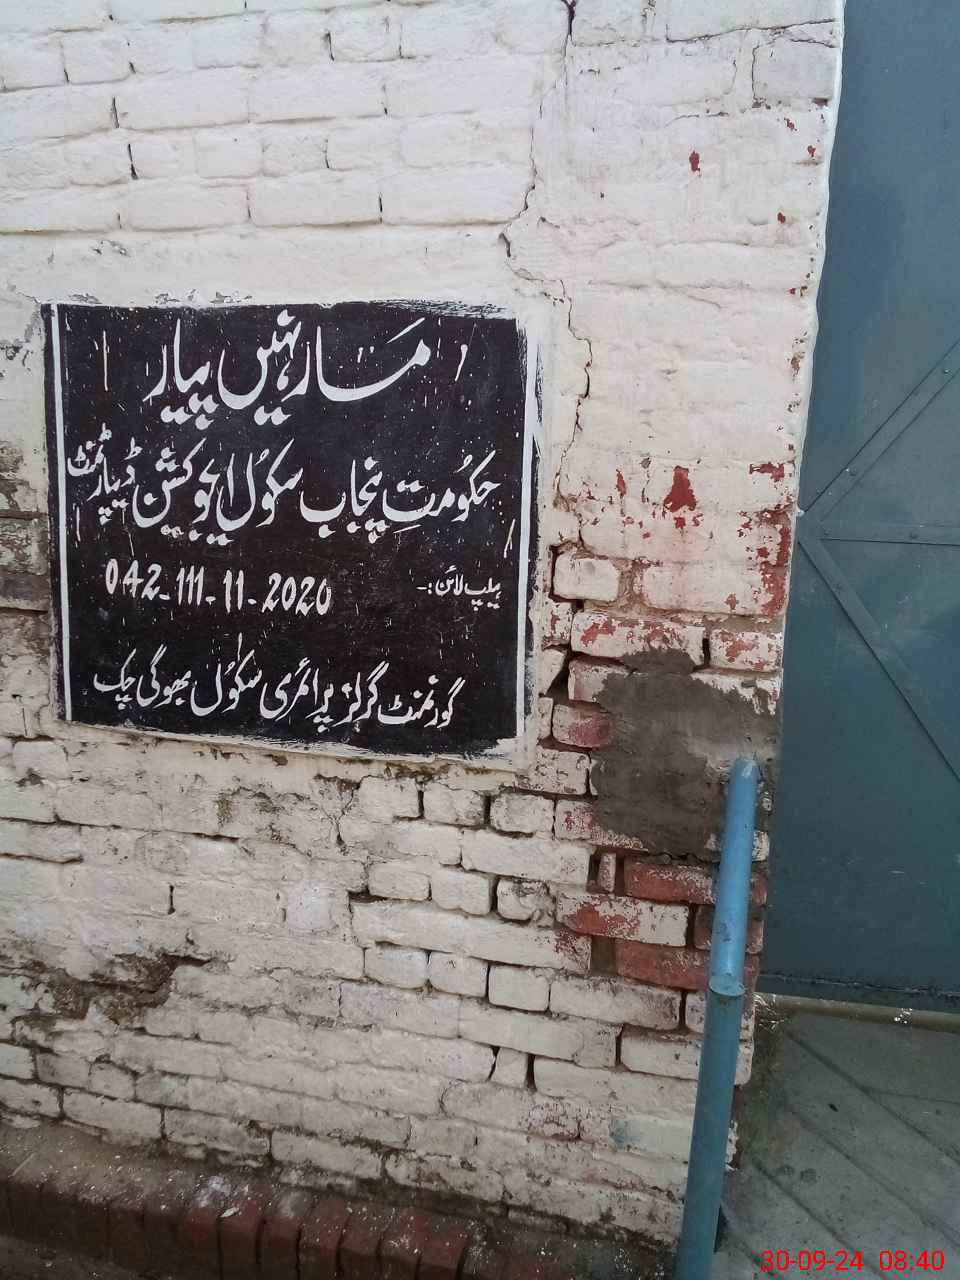 مار نہیں پیار
حکومتِ پنجاب سکول ایجوکیشن ڈیپارٹمنٹ
ہیلپ لائن :- 042-111-11-2020
گورنمنٹ گرلز پرائمری سکول بھوگی چک
30-09-24 08:40